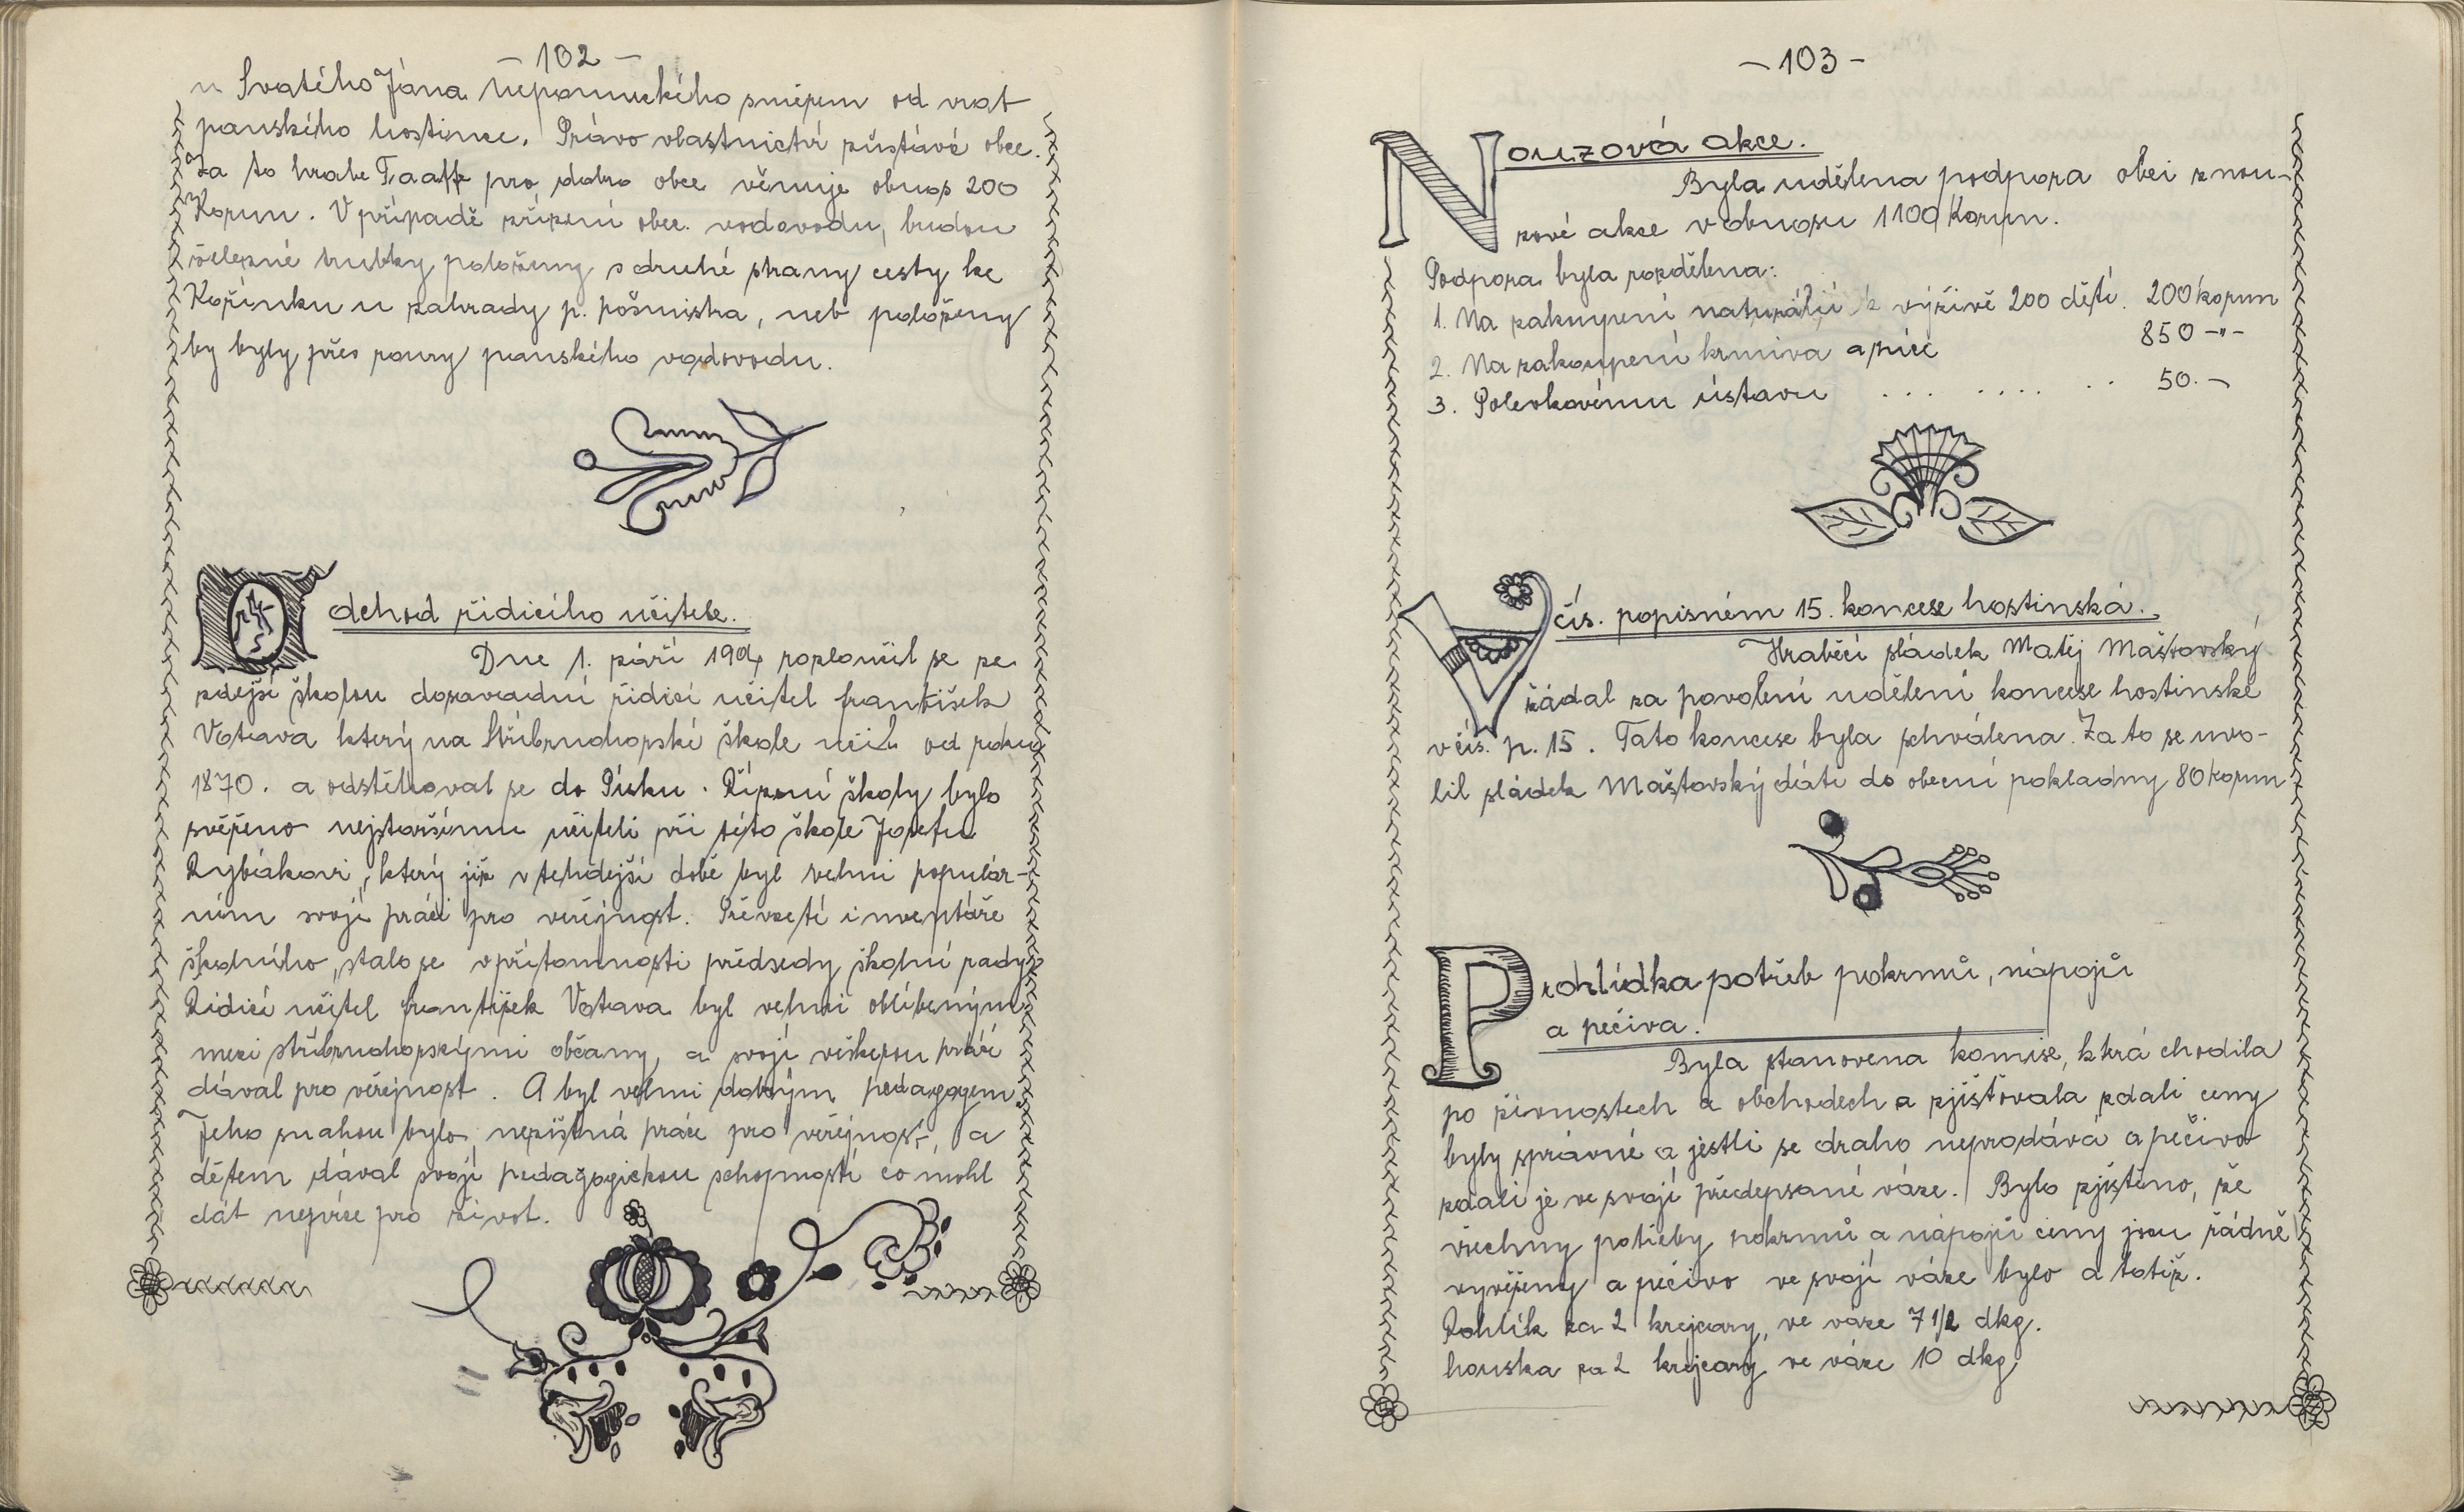 - 102 -
u Svatého Jána Nepomuckého směrem od vrat
panského hostince. Právo vlastnictví zůstává obce.
Za to hrabě Taaffe pro dobro obce věnuje obnos 200
Korun. V případě zřízení obec. vodovodu, budou
železné trubky položeny s druhé strany cesty ke
Kořínku u zahrady p. pošmistra, neb položeny
by byly přes roury panského vodovodu.
Odchod řídicího učitele.
Dne 1. září 1904 rozloučil se ze
zdejší školou dosavadní řídící učitel František
Votava který na Stříbrnohorské škole učil od roku
1870. a odstěhoval se do Písku. Řízení školy bylo
svěřeno nejstaršímu učiteli při této škole Josefu
Rybákovi, který již v tehdejší době byl velmi populár-
ním svojí prácí pro veřejnost. Převzetí inventáře
školního, stalo se v přítomnosti předsedy školní rady.
Řídící učitel František Votava byl velmi oblíbeným
mezi stříbrnohorskými občany, a svojí veškerou práci
dával pro veřejnost. A byl velmi dobrým pedagogem.
Jeho snahou bylo, nezištná práce pro veřejnost, a
dětem dával svojí pedagogickou schopností co mohl
dát nejvíce pro život.
- 103 -
Nouzová akce.
Byla udělena podpora obci z nou-
zové akce v obnosu 1100 Korun.
Podpora byla rozdělena:
1. Na zakoupení naturálií k výživě 200 dětí. 200 korun
2. Na zakoupení krmiva a píce 850 -"-
3. Polevkovému ústavu . . . . . . . . . 50.-
V čís. popisném 15. koncese hostinská.
Hraběcí sládek Matěj Maštovský
žádal za povolení udělení koncese hostinské
v čís. p. 15. Tato koncese byla schválena. Za to se uvo-
lil sládek Maštovský dáti do obecní pokladny 80 korun
Prohlídka potřeb pokrmů, nápojů
a pečiva.
Byla stanovena komise, která chodila
po živnostech a obchodech a zjišťovala zdali ceny
byly správné a jestli se draho neprodává a pečivo
zdali je ve svojí předepsané váze. Bylo zjištěno, že
všechny potřeby pokrmů a nápojů ceny jsou řádně
vyvěšeny a pečivo ve svojí váze bylo a totiž.
Rohlík za 2 krejcary, ve váze 7 1/2 dkg.
houska za 2 krejcary ve váze 10 dkg